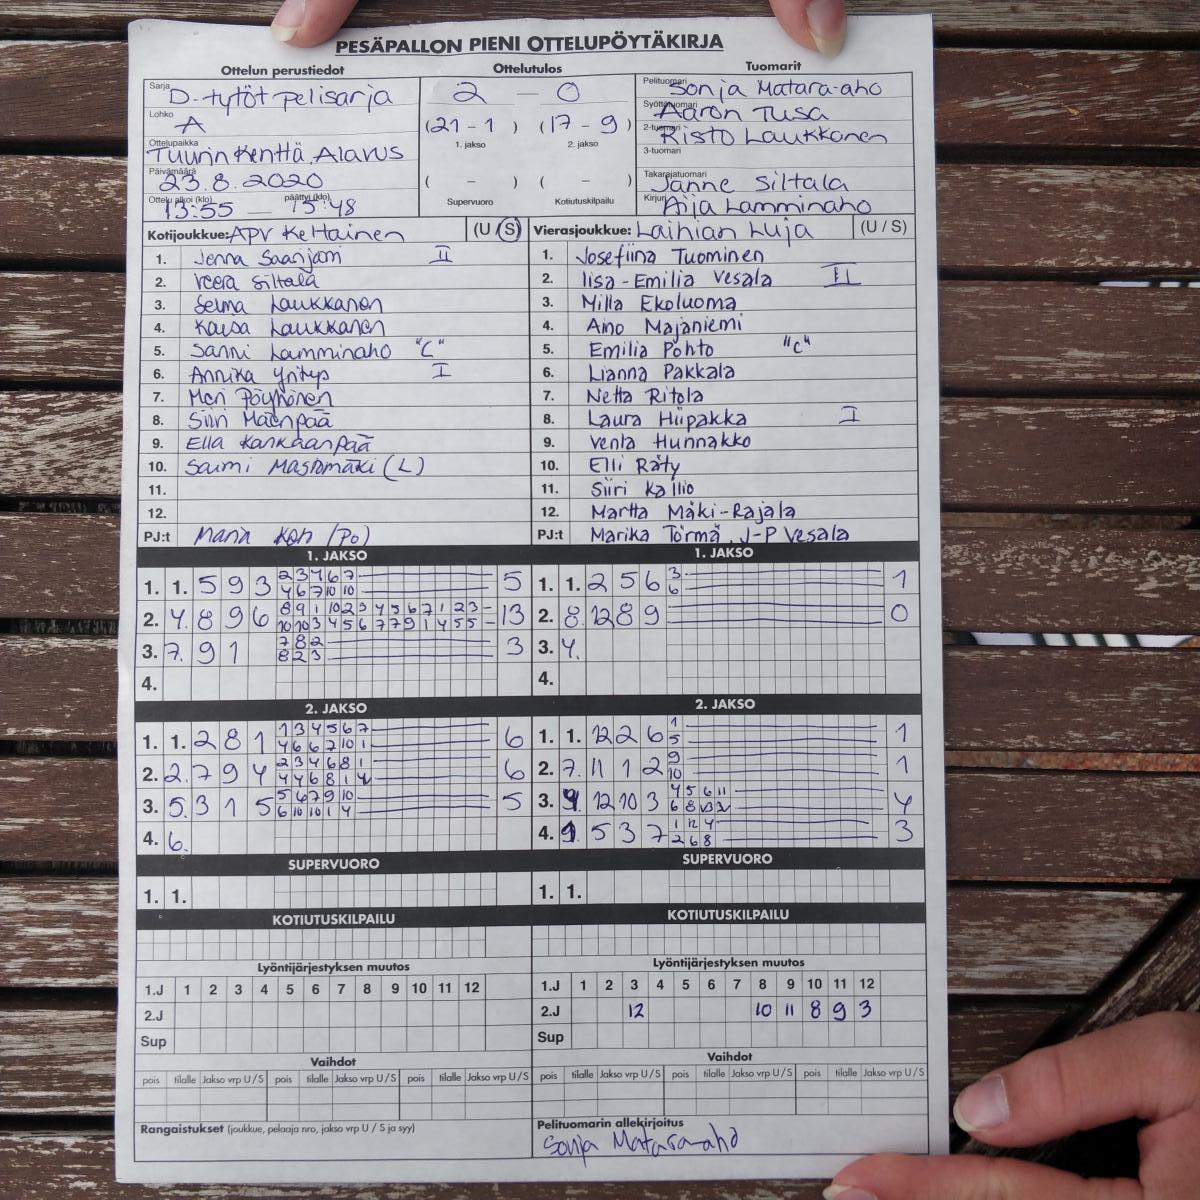 PESÄPALLON PIENI OTTELUPÖYTÄKIRJA
Ottelun perustiedot
Sarja D-tytöt pelisarja
Lohko A
Ottelupaikka Tuurin Kenttä, Alavus
Päivämäärä 23.8.2020
Ottelu alkoi (klo) 13:55 — päättyi (klo) 15:48
Ottelutulos
2 — 0
(21 - 1) (17 - 9)
1. jakso 2. jakso
( - ) ( - )
Supervuoro Kotiutuskilpailu
Tuomarit
Pelituomari Sonja Matara-aho
Syöttötuomari Aaron Tusa
2-tuomari Risto Laukkonen
3-tuomari
Takarajatuomari Janne Siltala
Kirjuri Aija Lamminaho
Kotijoukkue: APV Keltainen (U / S)
1. Jenna Saarijärvi II
2. Veera Siltala
3. Selma Laukkanen
4. Kaisa Laukkanen
5. Sanni Lamminaho "C"
6. Annika Yritys I
7. Meri Pöyhönen
8. Siiri Mäenpää
9. Ella Kankaanpää
10. Saimi Mastomäki (L)
11.
12.
PJ:t (Po)
Vierasjoukkue: Laihian Luja (U / S)
1. Josefiina Tuominen
2. Iisa-Emilia Vesala II
3. Milla Ekoluoma
4. Aino Majaniemi
5. Emilia Pohto "C"
6. Lianna Pakkala
7. Netta Ritola
8. Laura Hiipakka I
9. Venla Hunnakko
10. Elli Räty
11. Siiri Kallio
12. Martta Mäki-Rajala
PJ:t Marika Törmä, J-P Vesala
1. JAKSO
1. 1. 5 9 3 2 3 4 6 7 5
4 6 7 10 10
2. 4. 8 9 6 8 9 1 10 2 3 4 5 6 7 1 2 3 13
10 10 3 4 5 6 7 7 9 1 4 5 5
3. 7. 9 1 7 8 2 3
8 2 3
4.
1. JAKSO
1. 1. 2 5 6 3 1
6
2. 8. 12 8 9 0
3. 4.
4.
2. JAKSO
1. 1. 2 8 1 1 3 4 5 6 7 6
4 6 6 7 10 1
2. 2. 7 9 4 2 3 4 6 8 1 6
4 4 6 8 1 4
3. 5. 3 1 5 5 6 7 9 10 5
6 10 10 1 4
4. 6.
2. JAKSO
1. 1. 12 2 6 1 1
5
2. 7. 11 1 2 9 1
10
3. 9. 12 10 3 4 5 6 11 4
6 8
4. 9. 5 3 7 1 12 4 3
2 6 8
SUPERVUORO
1. 1.
SUPERVUORO
1. 1.
KOTIUTUSKILPAILU
KOTIUTUSKILPAILU
Lyöntijärjestyksen muutos
1.J 1 2 3 4 5 6 7 8 9 10 11 12
2.J
Sup
Lyöntijärjestyksen muutos
1.J 1 2 3 4 5 6 7 8 9 10 11 12
2.J 12 10 11 8 9 3
Sup
Vaihdot
pois tilalle Jakso vrp U / S pois tilalle Jakso vrp U / S pois tilalle Jakso vrp U / S
Vaihdot
pois tilalle Jakso vrp U / S pois tilalle Jakso vrp U / S pois tilalle Jakso vrp U / S
Rangaistukset (joukkue, pelaaja nro, jakso vrp U / S ja syy)
Pelituomarin allekirjoitus
Sonja Matara-aho